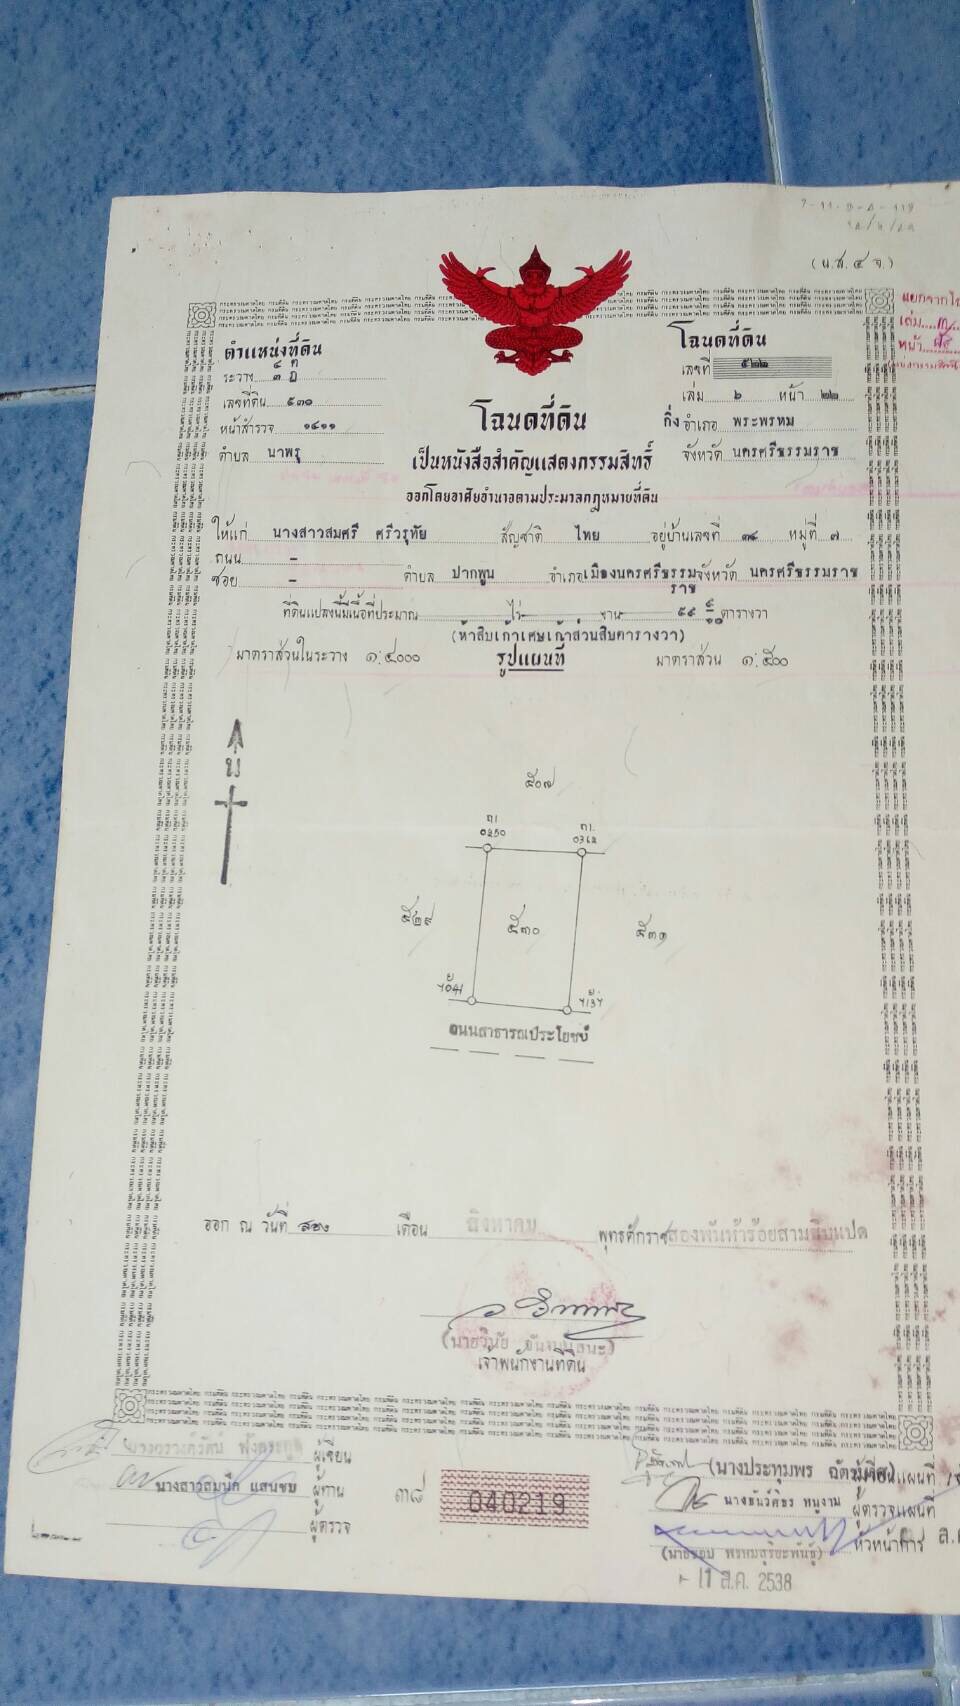 (น.ส.๔ จ.)
ตำแหน่งที่ดิน
ระวาง
เลขที่ดิน ๕๓๐
หน้าสำรวจ ๑๔๑๑
ตำบล นาพรุ
โฉนดที่ดิน
เลขที่ ๕๒๒
เล่ม ๖ หน้า ๒๒
กิ่งอำเภอ พระพรหม
จังหวัด นครศรีธรรมราช
โฉนดที่ดิน
เป็นหนังสือสำคัญแสดงกรรมสิทธิ์
ออกโดยอาศัยอำนาจตามประมวลกฎหมายที่ดิน
ให้แก่ นางสาวสมศรี ศรีวรุทัย สัญชาติ ไทย อยู่บ้านเลขที่ ๓๘ หมู่ที่ ๗
ถนน -
ซอย - ตำบล ปากพูน อำเภอ เมืองนครศรีธรรมราช จังหวัด นครศรีธรรมราช
ที่ดินแปลงนี้มีเนื้อที่ประมาณ - ไร่ - งาน ๕๙ ๙/๑๐ ตารางวา
(ห้าสิบเก้าเศษเก้าส่วนสิบตารางวา)
มาตราส่วนในระวาง ๑:๔๐๐๐ รูปแผนที่ มาตราส่วน ๑:๕๐๐
น
๕๐๗
0250
0362
๕๒๙ ๕๓๐ ๕๓๑
ถนนสาธารณประโยชน์
ออก ณ วันที่ สอง เดือน สิงหาคม พุทธศักราช สองพันห้าร้อยสามสิบแปด
เจ้าพนักงานที่ดิน
ผู้เขียน
นางสาวสมนึก แสนชบ ผู้ทาน
ผู้ตรวจ
๓๘ 040219
(นางประทุมพร ฉัตรชุ้ทิศ) ผู้เขียนแผนที่
นางธันว์ศิธร หนูงาม ผู้ตรวจแผนที่
หัวหน้าการ
11 ส.ค. 2538